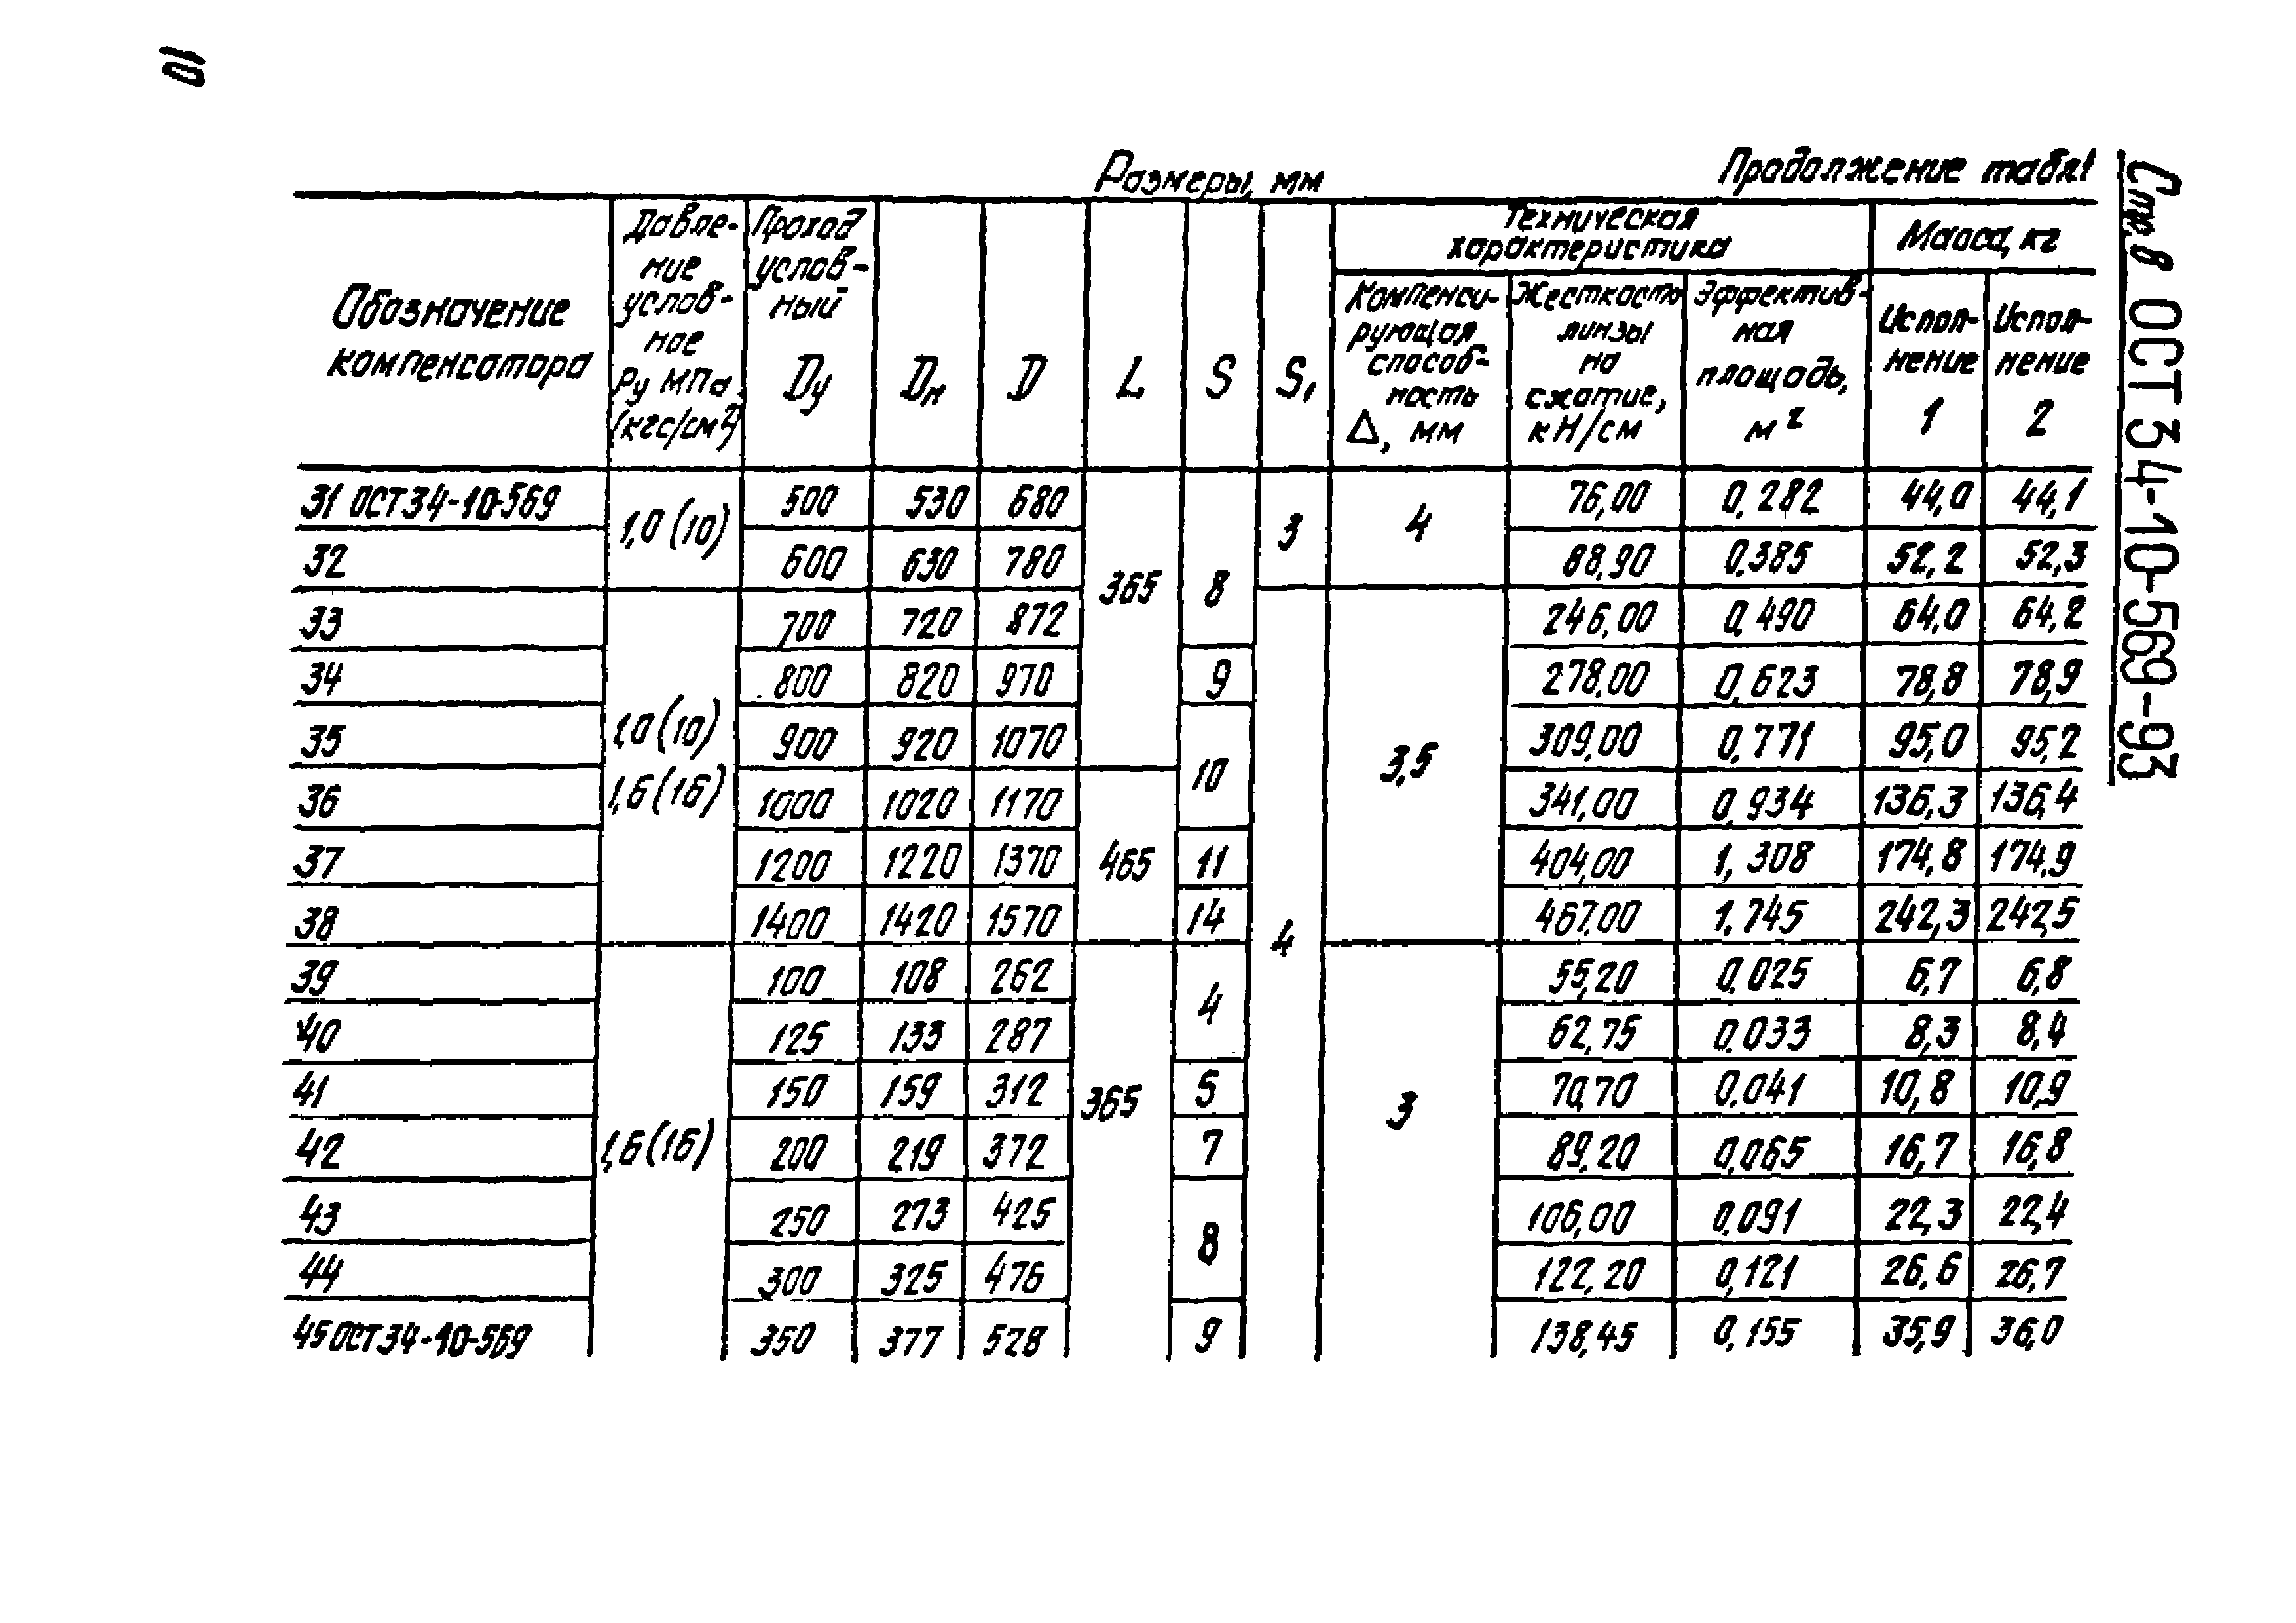 10
Размеры, мм
Продолжение табл1
Обозначение
компенсатора
Давле-
ние
услов-
ное
Ру МПа
(кгс/см²)
Проход
услов-
ный
Dу
Dн
D
L
S
S₁
Техническая
характеристика
Масса, кг
Компенси-
рующая
способ-
ность
Δ, мм
Жесткость
линзы
на
сжатие,
кН/см
Эффектив-
ная
площадь,
м²
Испол-
нение
1
Испол-
нение
2
31 ОСТ34-10-569 1,0(10) 500 530 680 365 8 3 4 76,00 0,282 44,0 44,1
32 600 630 780 88,90 0,385 52,2 52,3
33 1,0(10) 700 720 872 4 3,5 246,00 0,490 64,0 64,2
34 1,6(16) 800 820 970 9 278,00 0,623 78,8 78,9
35 900 920 1070 10 309,00 0,771 95,0 95,2
36 1000 1020 1170 465 341,00 0,934 136,3 136,4
37 1200 1220 1370 11 404,00 1,308 174,8 174,9
38 1400 1420 1570 14 467,00 1,745 242,3 242,5
39 1,6(16) 100 108 262 365 4 3 55,20 0,025 6,7 6,8
40 125 133 287 62,75 0,033 8,3 8,4
41 150 159 312 5 70,70 0,041 10,8 10,9
42 200 219 372 7 89,20 0,065 16,7 16,8
43 250 273 425 8 106,00 0,091 22,3 22,4
44 300 325 476 122,20 0,121 26,6 26,7
45 ОСТ34-10-569 350 377 528 9 138,45 0,155 35,9 36,0
Стр. 8 ОСТ 34-10-569-93